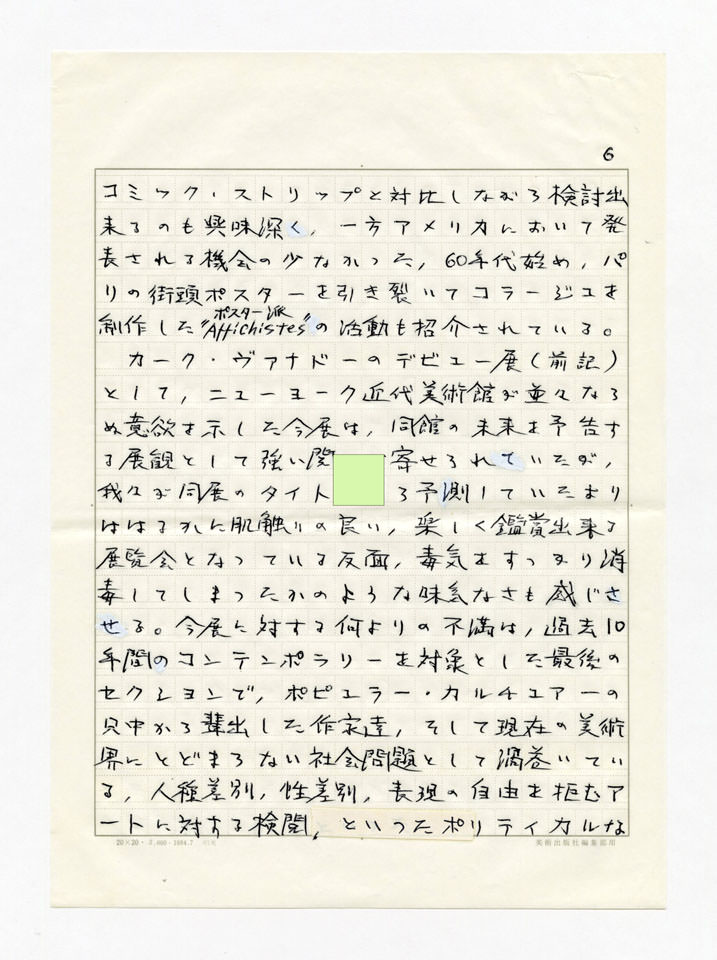 6
コミック・ストリップと対比しながら検討出
来るのも興味深く，一方アメリカにおいて発
表される機会の少なかった，60年代始め，パ
リの街頭ポスターを引き裂いてコラージュを
ポスター派
創作した"Affichistes"の活動も紹介されている。
カーク・ヴァナドーのデビュー展（前記）
として，ニューヨーク近代美術館が並々なら
ぬ意欲を示した今展は，同館の未来を予告す
る展観として強い関 寄せられていたが，
我々が同展のタイト ら予測していたより
ははるかに肌触りの良い，楽しく鑑賞出来る
展覧会となっている反面，毒気をすっかり消
毒してしまったかのような味気なさも感じさ
せる。今展に対する何よりの不満は，過去10
年間のコンテンポラリーを対象とした最後の
セクションで，ポピュラー・カルチュアーの
只中から輩出した作家達，そして現在の美術
界にとどまらない社会問題として渦巻いてい
る，人種差別，性差別，表現の自由を拒むア
ートに対する検閲，といったポリティカルな
美術出版社編集部用